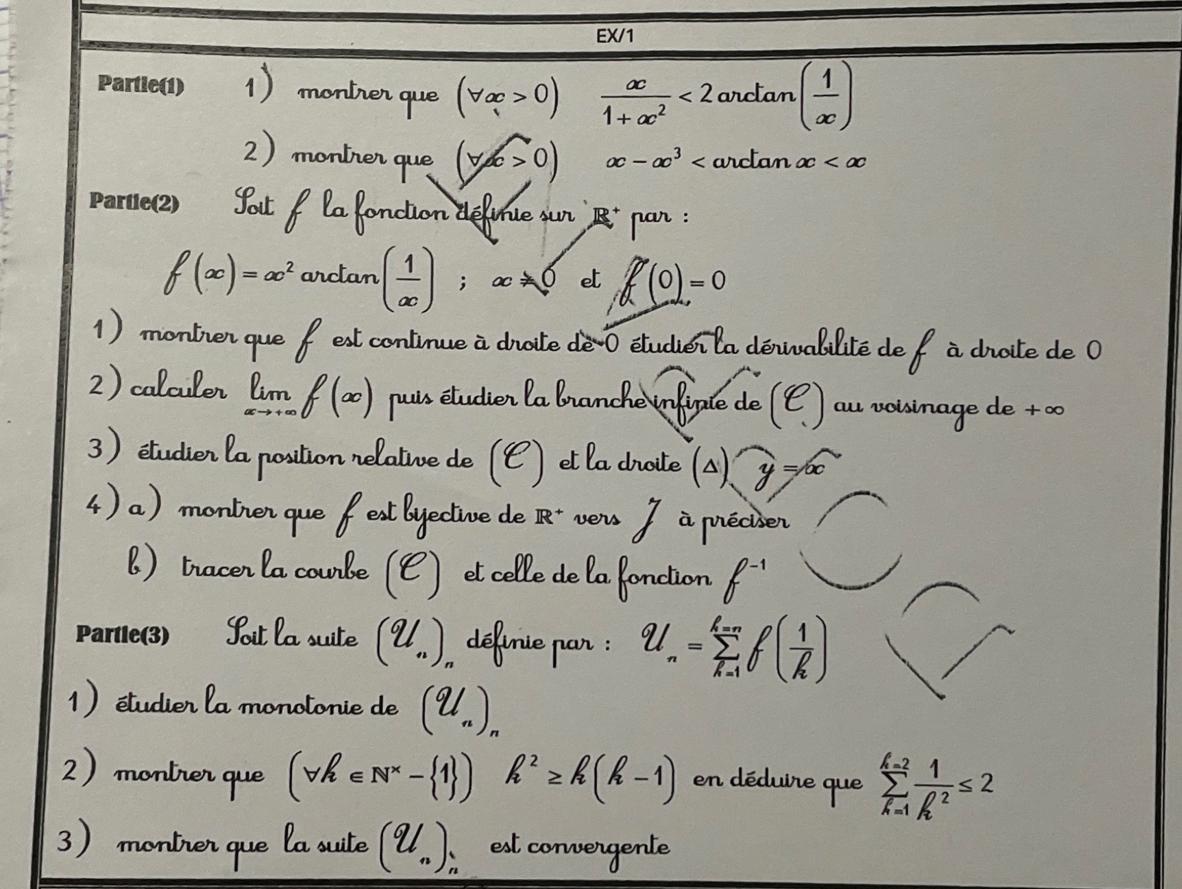 EX/1
Partie(1) 1) montrer que (∀x > 0) x/(1 + x²) < 2 arctan(1/x)
2) montrer que (∀x > 0) x − x³ < arctan x < x
Partie(2) Soit f la fonction définie sur ℝ⁺ par :
f(x) = x² arctan(1/x) ; x ≠ 0 et f(0) = 0
1) montrer que f est continue à droite de 0 étudier la dérivabilité de f à droite de 0
2) calculer lim x→+∞ f(x) puis étudier la branche infinie de (C) au voisinage de +∞
3) étudier la position relative de (C) et la droite (Δ) y = x
4) a) montrer que f est bijective de ℝ⁺ vers J à préciser
b) tracer la courbe (C) et celle de la fonction f⁻¹
Partie(3) Soit la suite (Uₙ)ₙ définie par : Uₙ = Σ_{k=1}^{k=n} f(1/k)
1) étudier la monotonie de (Uₙ)ₙ
2) montrer que (∀k ∈ ℕ* − {1}) k² ≥ k(k − 1) en déduire que Σ_{k=1}^{k=2} 1/k² ≤ 2
3) montrer que la suite (Uₙ)ₙ est convergente